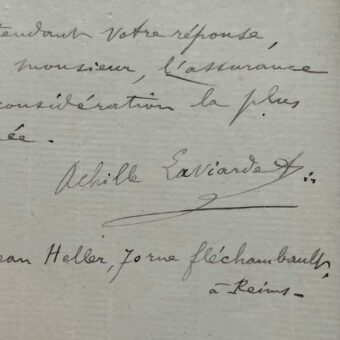 tendant votre réponse,
monsieur, l'assurance
considération la plus
ée.
Achille Laviarde
ean Heller, 70 rue fléchambault,
à Reims